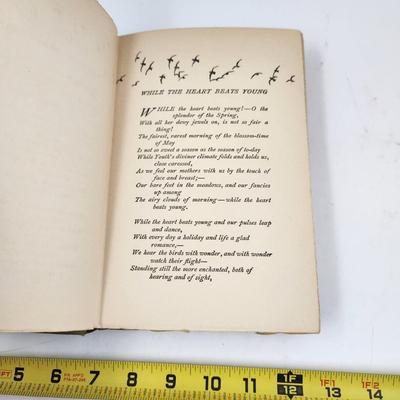 WHILE THE HEART BEATS YOUNG
WHILE the heart beats young!—O the
splendor of the Spring,
With all her dewy jewels on, is not so fair a
thing!
The fairest, rarest morning of the blossom-time
of May
Is not so sweet a season as the season of to-day
While Youth's diviner climate folds and holds us,
close caressed,
As we feel our mothers with us by the touch of
face and breast;—
Our bare feet in the meadows, and our fancies
up among
The airy clouds of morning—while the heart
beats young.
While the heart beats young and our pulses leap
and dance,
With every day a holiday and life a glad
romance,—
We hear the birds with wonder, and with wonder
watch their flight—
Standing still the more enchanted, both of
hearing and of sight,
5 6 7 8 9 10 11 1F 12 13 1F2 14